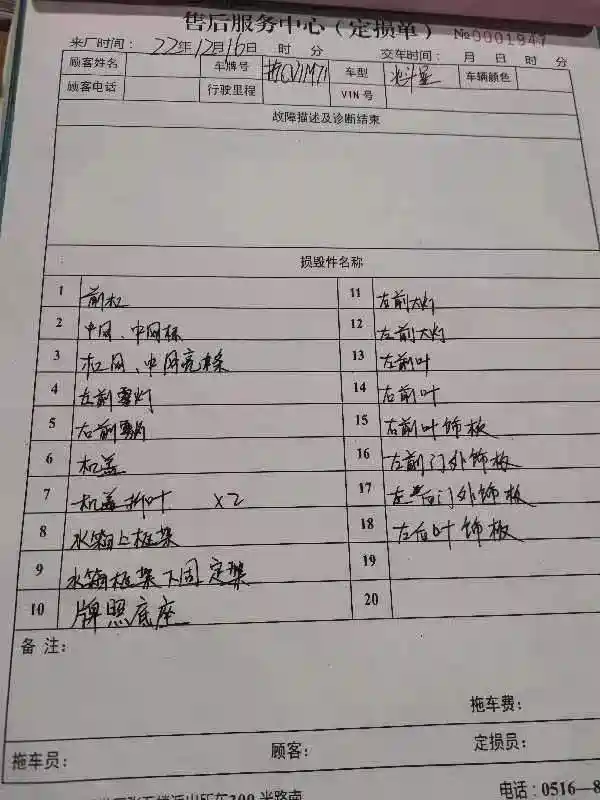 售后服务中心（定损单） №0001947
来厂时间： 22年12月16日 时 分 交车时间： 月 日 时 分
顾客姓名 车牌号 车型 北斗星 车辆颜色
顾客电话 行驶里程 VIN 号
故障描述及诊断结束
损毁件名称
1 前杠 11 左前大灯
2 中网、中网标 12 左前大灯
3 杠网、中网亮条 13 左前叶
4 左前雾灯 14 右前叶
5 右前雾灯 15 右前叶饰板
6 机盖 16 左前门外饰板
7 机盖 X2 17 左后门外饰板
8 水箱上框架 18 左后叶饰板
9 水箱框架下固定架 19
10 牌照底座 20
备 注：
拖车费：
拖车员： 顾客： 定损员：
派出所在300米路南 电话：0516—8